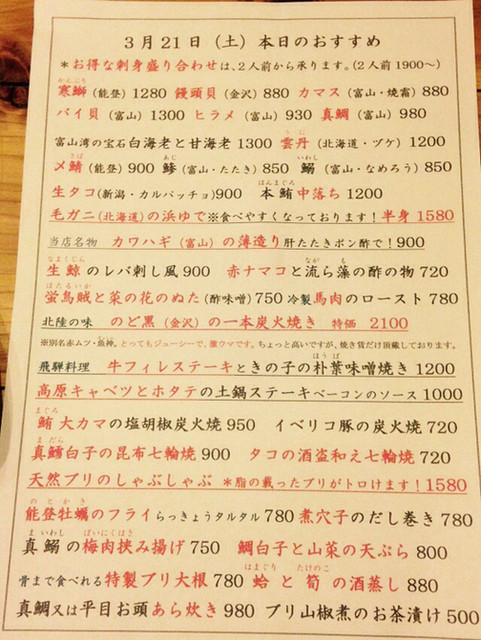 3月21日（土）本日のおすすめ
＊お得な刺身盛り合わせは、2人前から承ります。（2人前 1900～）
寒鰤（能登）1280 饅頭貝（金沢）880 カマス（富山・焼霜）880
バイ貝（富山）1300 ヒラメ（富山）930 真鯛（富山）980
富山湾の宝石白海老と甘海老1300 雲丹（北海道・ヅケ）1200
〆鯖（能登）900 鯵（富山・たたき）850 鰯（富山・なめろう）850
生タコ（新潟・カルパッチョ）900 本鮪中落ち1200
毛ガニ（北海道）の浜ゆで※食べやすくなっております！半身1580
当店名物 カワハギ（富山）の薄造り肝たたきポン酢で！900
生鯨のレバ刺し風900 赤ナマコと流ら藻の酢の物720
蛍烏賊と菜の花のぬた（酢味噌）750 冷製馬肉のロースト780
北陸の味 のど黒（金沢）の一本炭火焼き 特価 2100
※別名赤ムツ・魚神。とってもジューシーで、激ウマです。ちょっと高いですが、焼き賃だけ頂戴しております。
飛騨料理 牛フィレステーキときの子の朴葉味噌焼き1200
高原キャベツとホタテの土鍋ステーキベーコンのソース1000
鮪大カマの塩胡椒炭火焼950 イベリコ豚の炭火焼720
真鱈白子の昆布七輪焼900 タコの酒盗和え七輪焼720
天然ブリのしゃぶしゃぶ ＊脂の載ったブリがトロけます！1580
能登牡蠣のフライらっきょうタルタル780 煮穴子のだし巻き780
真鰯の梅肉挟み揚げ750 鯛白子と山菜の天ぷら800
骨まで食べれる特製ブリ大根780 蛤と筍の酒蒸し880
真鯛又は平目お頭あら炊き980 ブリ山椒煮のお茶漬け500